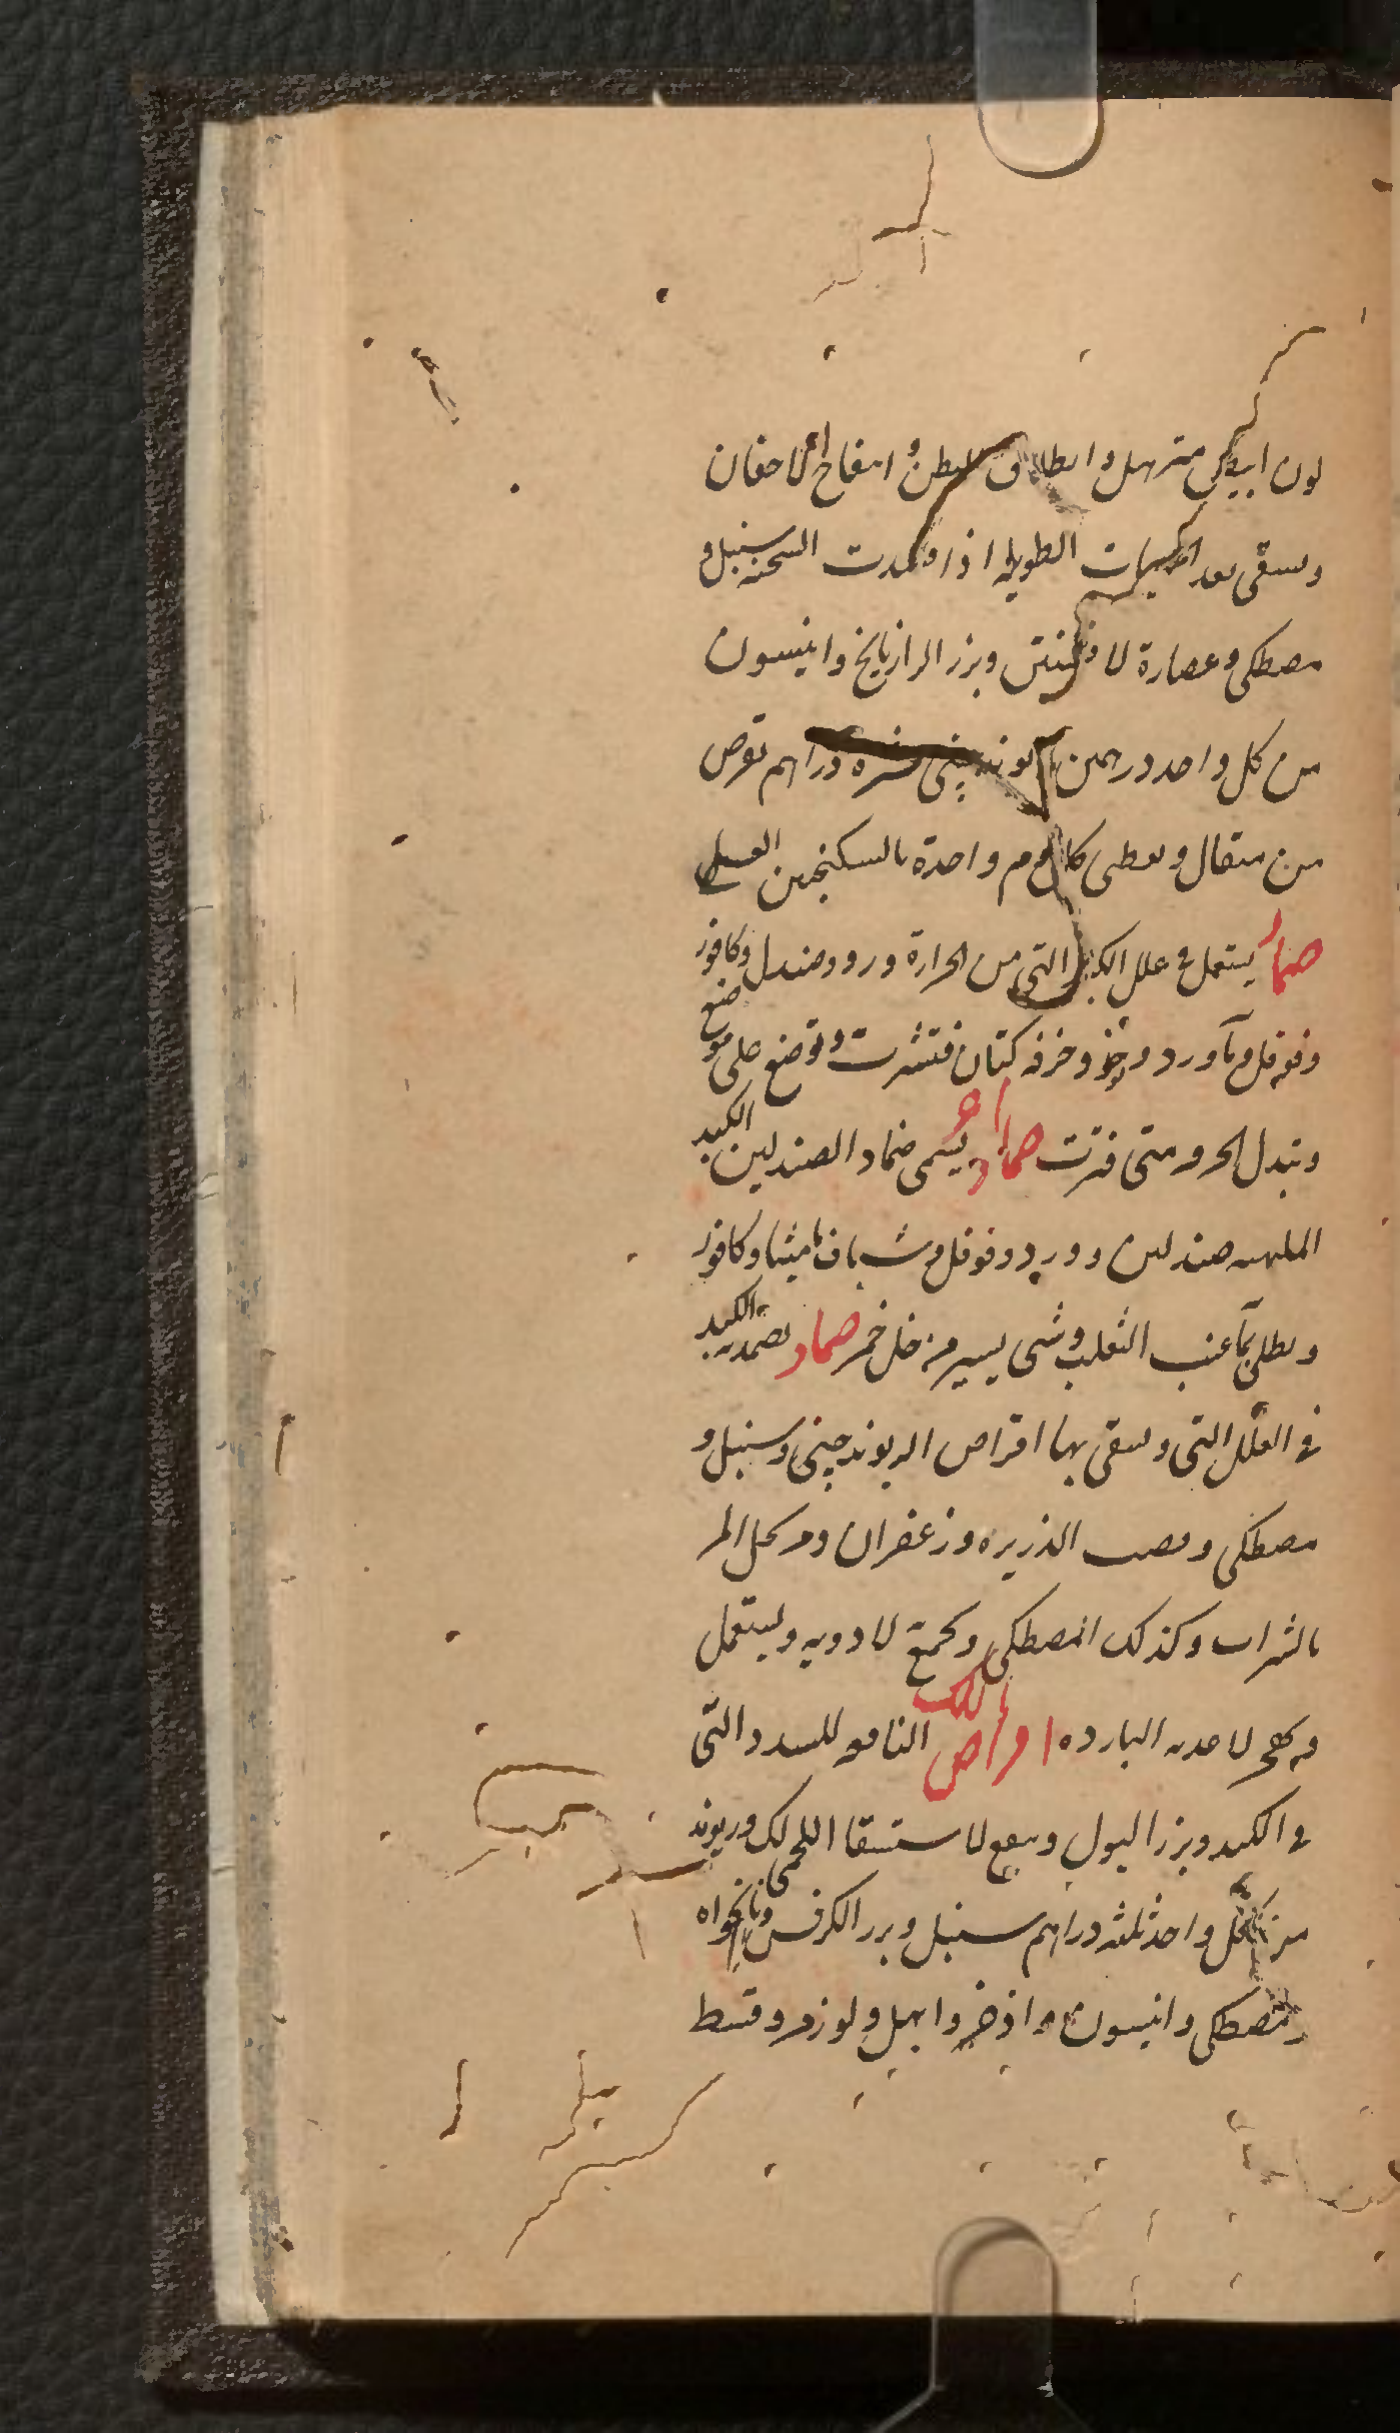 لون ابيض مترهل وانطلاق البطن وانتفاخ الاجفان
ويسقى بعد الحميات الطويلة اذا فسدت السحنة سنبل و
مصطكى وعصارة الافسنتين وبزر الرازيانج وانيسون
من كل واحد درهمين ريوند چينى عشره دراهم يقرص
من مثقال ويعطى كل يوم واحدة بالسكنجبين العسلى
ضماد يستعمل فى علل الكبد التى من الحرارة ورد وصندل وكافور
وفوفل وماورد وخرقه كتان فتشرب وتوضع على موضع
الكبد
وتبدل اخرى متى فترت ضماد اخر يسمى ضماد الصندلين
الملهبه صندلين وورد وفوفل وشياف ماميثا وكافور
ويطلى بماء عنب الثعلب وشى يسير من خل خمر ضماد يضمد به الكبد
فى العلل التى ويسقى بها اقراص الريوند چينى وسنبل و
مصطكى وقصب الذريره وزعفران ومر يحل المر
بالشراب وكذلك المصطكى ويجمع الادويه ويستعمل
البارده اقراص اللك النافعه للسدد التى
فى الكبد ويزر البول وينفع الاستسقا اللحمى لك وريوند
من كل واحد ثلثه دراهم سنبل وبزر الكرفس ونانخواه
ومصطكى وانيسون واذخر وابهل ولوز مر وقسط